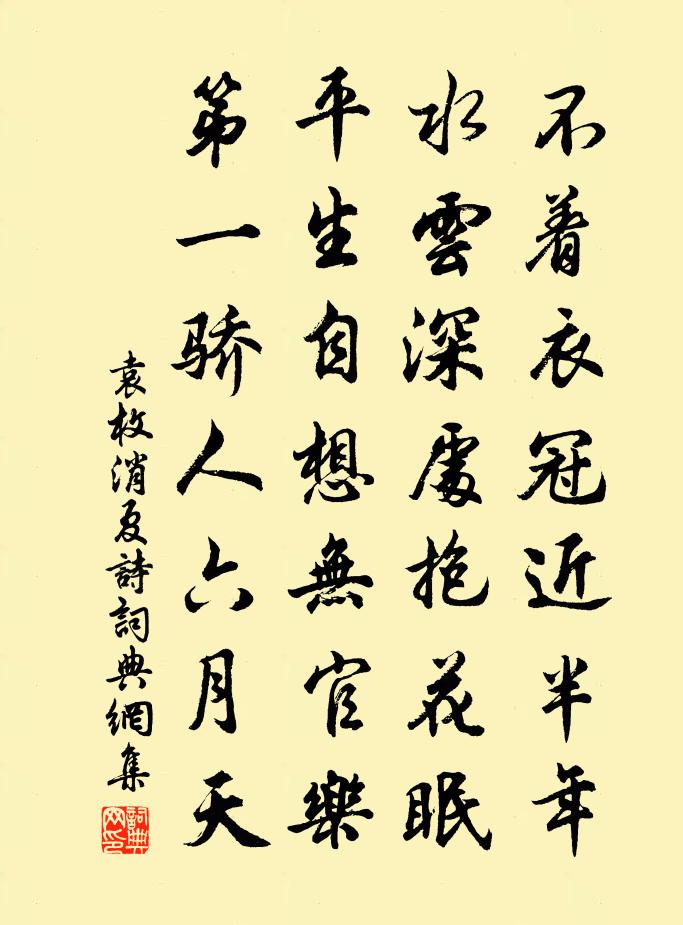 不着衣冠近半年
水雲深處抱花眠
平生自想無官樂
第一骄人六月天
袁枚消夏詩詞典網集
詞典
网印